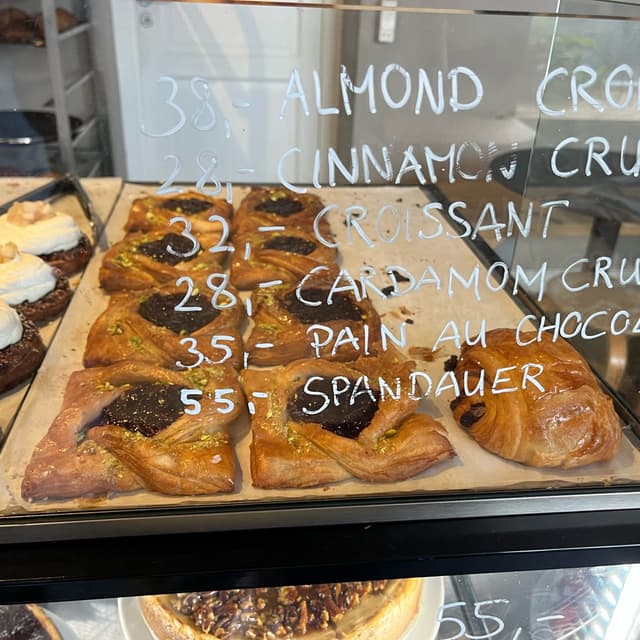 38,- ALMOND CRO
28,- CINNAMON CRU
32,- CROISSANT
28,- CARDAMOM CRU
35,- PAIN AU CHOCOA
55,- SPANDAUER
55,-